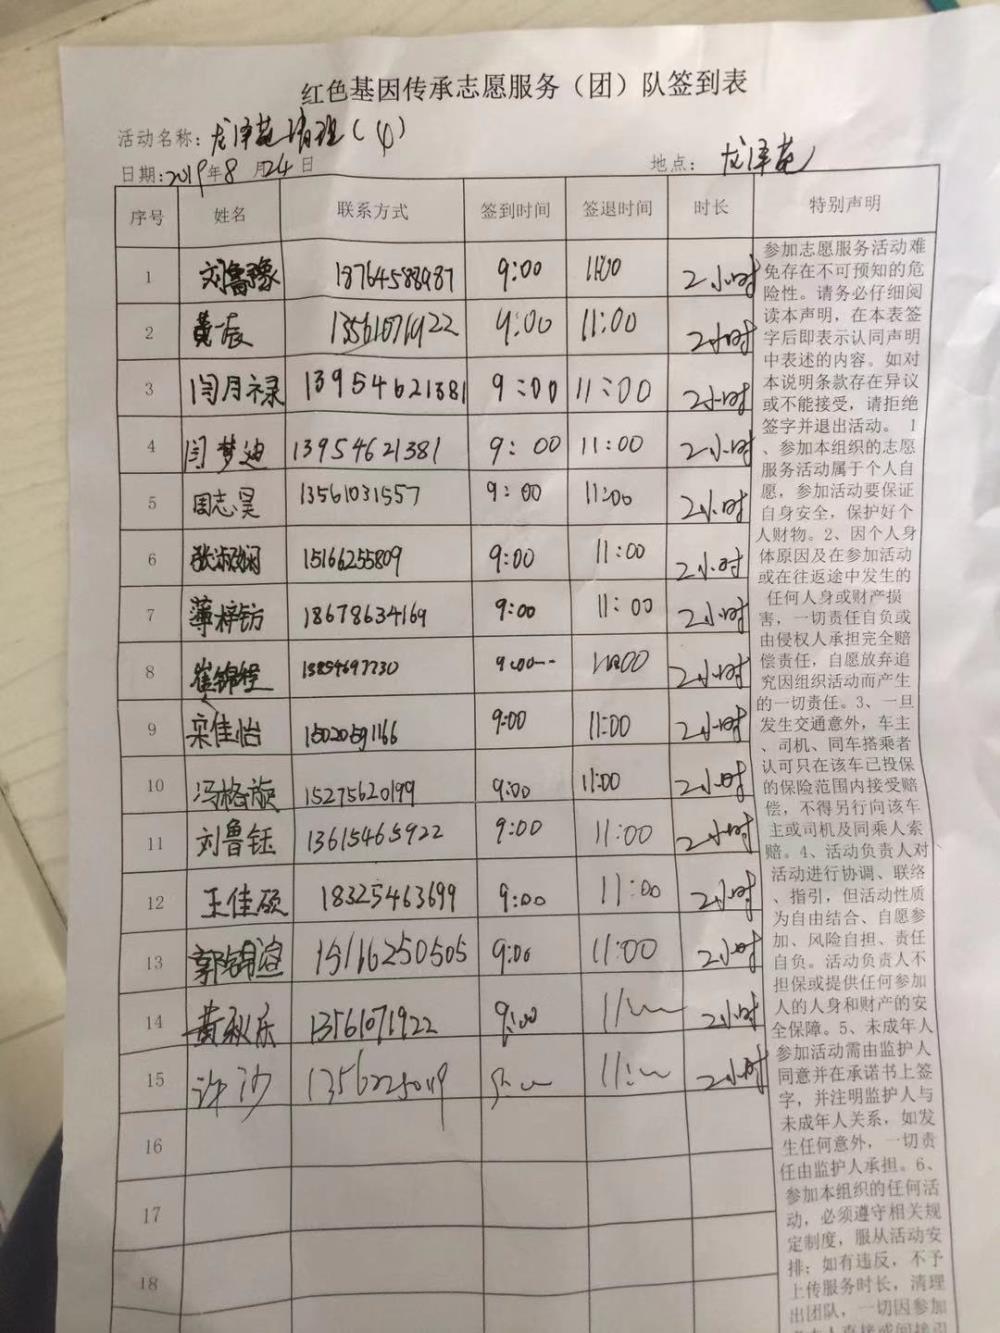 红色基因传承志愿服务（团）队签到表
活动名称：龙泽苑清理（4）
日期：2019年8月24日 地点：龙泽苑
序号 姓名 联系方式 签到时间 签退时间 时长 特别声明
1 刘鲁豫 18764588987 9:00 11:00 2小时
2 黄辰 13561071922 9:00 11:00 2小时
3 闫月禄 13954621381 9:00 11:00 2小时
4 闫梦迪 13954621381 9:00 11:00 2小时
5 周志昊 13561031557 9:00 11:00 2小时
6 张淑娴 15166255809 9:00 11:00 2小时
7 薄梓钫 18678634169 9:00 11:00 2小时
8 崔锦程 13854697730 9:00 11:00 2小时
9 宋佳怡 15020591166 9:00 11:00 2小时
10 冯格旋 15275620199 9:00 11:00 2小时
11 刘鲁钰 13615465922 9:00 11:00 2小时
12 王佳硕 18325463699 9:00 11:00 2小时
13 郭锦瑄 15166250505 9:00 11:00 2小时
14 黄秋乐 13561071922 9:00 11: 2小时
15 许沙 2小时
16
17
18
参加志愿服务活动难
免存在不可预知的危
险性。请务必仔细阅
读本声明，在本表签
字后即表示认同声明
中表述的内容。如对
本说明条款存在异议
或不能接受，请拒绝
签字并退出活动。 1
、参加本组织的志愿
服务活动属于个人自
愿，参加活动要保证
自身安全，保护好个
人财物。2、因个人身
体原因及在参加活动
或在往返途中发生的
任何人身或财产损
害，一切责任自负或
由侵权人承担完全赔
偿责任，自愿放弃追
究因组织活动而产生
的一切责任。3、一旦
发生交通意外，车主
、司机、同车搭乘者
认可只在该车已投保
的保险范围内接受赔
偿，不得另行向该车
主或司机及同乘人索
赔。4、活动负责人对
活动进行协调、联络
、指引，但活动性质
为自由结合、自愿参
加、风险自担、责任
自负。活动负责人不
担保或提供任何参加
人的人身和财产的安
全保障。5、未成年人
参加活动需由监护人
同意并在承诺书上签
字，并注明监护人与
未成年人关系，如发
生任何意外，一切责
任由监护人承担。6、
参加本组织的任何活
动，必须遵守相关规
定制度，服从活动安
排；如有违反，不予
上传服务时长，清理
出团队，一切因参加